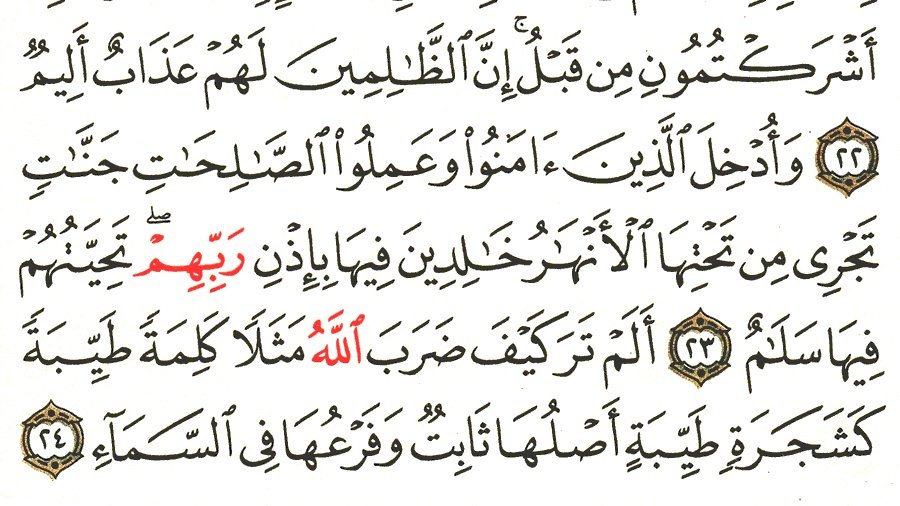 أَشْرَكْتُمُونِ مِن قَبْلُ ۚ إِنَّ ٱلظَّـٰلِمِينَ لَهُمْ عَذَابٌ أَلِيمٌ
٢٢ وَأُدْخِلَ ٱلَّذِينَ ءَامَنُوا۟ وَعَمِلُوا۟ ٱلصَّـٰلِحَـٰتِ جَنَّـٰتٍ
تَجْرِى مِن تَحْتِهَا ٱلْأَنْهَـٰرُ خَـٰلِدِينَ فِيهَا بِإِذْنِ رَبِّهِمْ ۖ تَحِيَّتُهُمْ
فِيهَا سَلَـٰمٌ ٢٣ أَلَمْ تَرَ كَيْفَ ضَرَبَ ٱللَّهُ مَثَلًا كَلِمَةً طَيِّبَةً
كَشَجَرَةٍ طَيِّبَةٍ أَصْلُهَا ثَابِتٌ وَفَرْعُهَا فِى ٱلسَّمَآءِ ٢٤